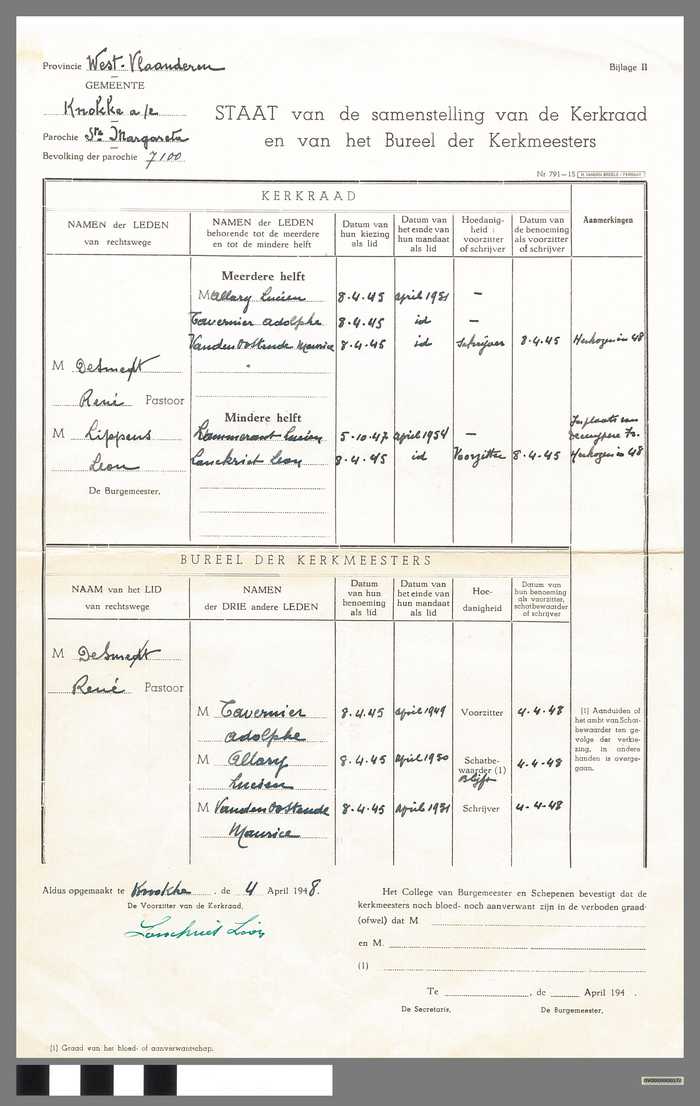 Provincie West-Vlaanderen
Bijlage II
GEMEENTE
Knokke a/z
STAAT van de samenstelling van de Kerkraad
en van het Bureel der Kerkmeesters
Parochie Sta Margareta
Bevolking der parochie 7100
Nr 791-15
KERKRAAD
NAMEN der LEDEN van rechtswege
NAMEN der LEDEN behorende tot de meerdere en tot de mindere helft
Datum van hun kiezing als lid
Datum van het einde van hun mandaat als lid
Hoedanigheid : voorzitter of schrijver
Datum van de benoeming als voorzitter of schrijver
Aanmerkingen
Meerdere helft
M Allary Lucien 8-4-45 April 1951 -
Tavernier Adolphe 8-4-45 id -
Vanden Oostende Maurice 8-4-45 id Schrijver 8-4-45 Herkozen in 48
M DeSmedt
René Pastoor
Mindere helft
M Lippens
Lammerant Lucien 5-10-47 April 1954 - In plaats van Deceuypere Fr.
Leon
Lanckriet Leon 8-4-45 id Voorzitter 8-4-45 Herkozen in 48
De Burgemeester,
BUREEL DER KERKMEESTERS
NAAM van het LID van rechtswege
NAMEN der DRIE andere LEDEN
Datum van hun benoeming als lid
Datum van het einde van hun mandaat als lid
Hoedanigheid
Datum van hun benoeming als voorzitter, schatbewaarder of schrijver
M DeSmedt
René Pastoor
M Tavernier 8-4-45 April 1949 Voorzitter 4-4-48
Adolphe
M Allary 8-4-45 April 1950 Schatbewaarder (1) 4-4-48
Lucien Blijft
M Vanden Oostende 8-4-45 April 1951 Schrijver 4-4-48
Maurice
(1) Aanduiden of
het ambt van Schat-
bewaarder ten ge-
volge der verkie-
zing, in andere
handen is overge-
gaan.
Aldus opgemaakt te Knokke, de 4 April 1948.
De Voorzitter van de Kerkraad,
Lanckriet Léon
Het College van Burgemeester en Schepenen bevestigt dat de
kerkmeesters noch bloed- noch aanverwant zijn in de verboden graad
(ofwel) dat M
en M.
(1)
Te , de April 194 .
De Secretaris, De Burgemeester,
(1) Graad van het bloed- of aanverwantschap.